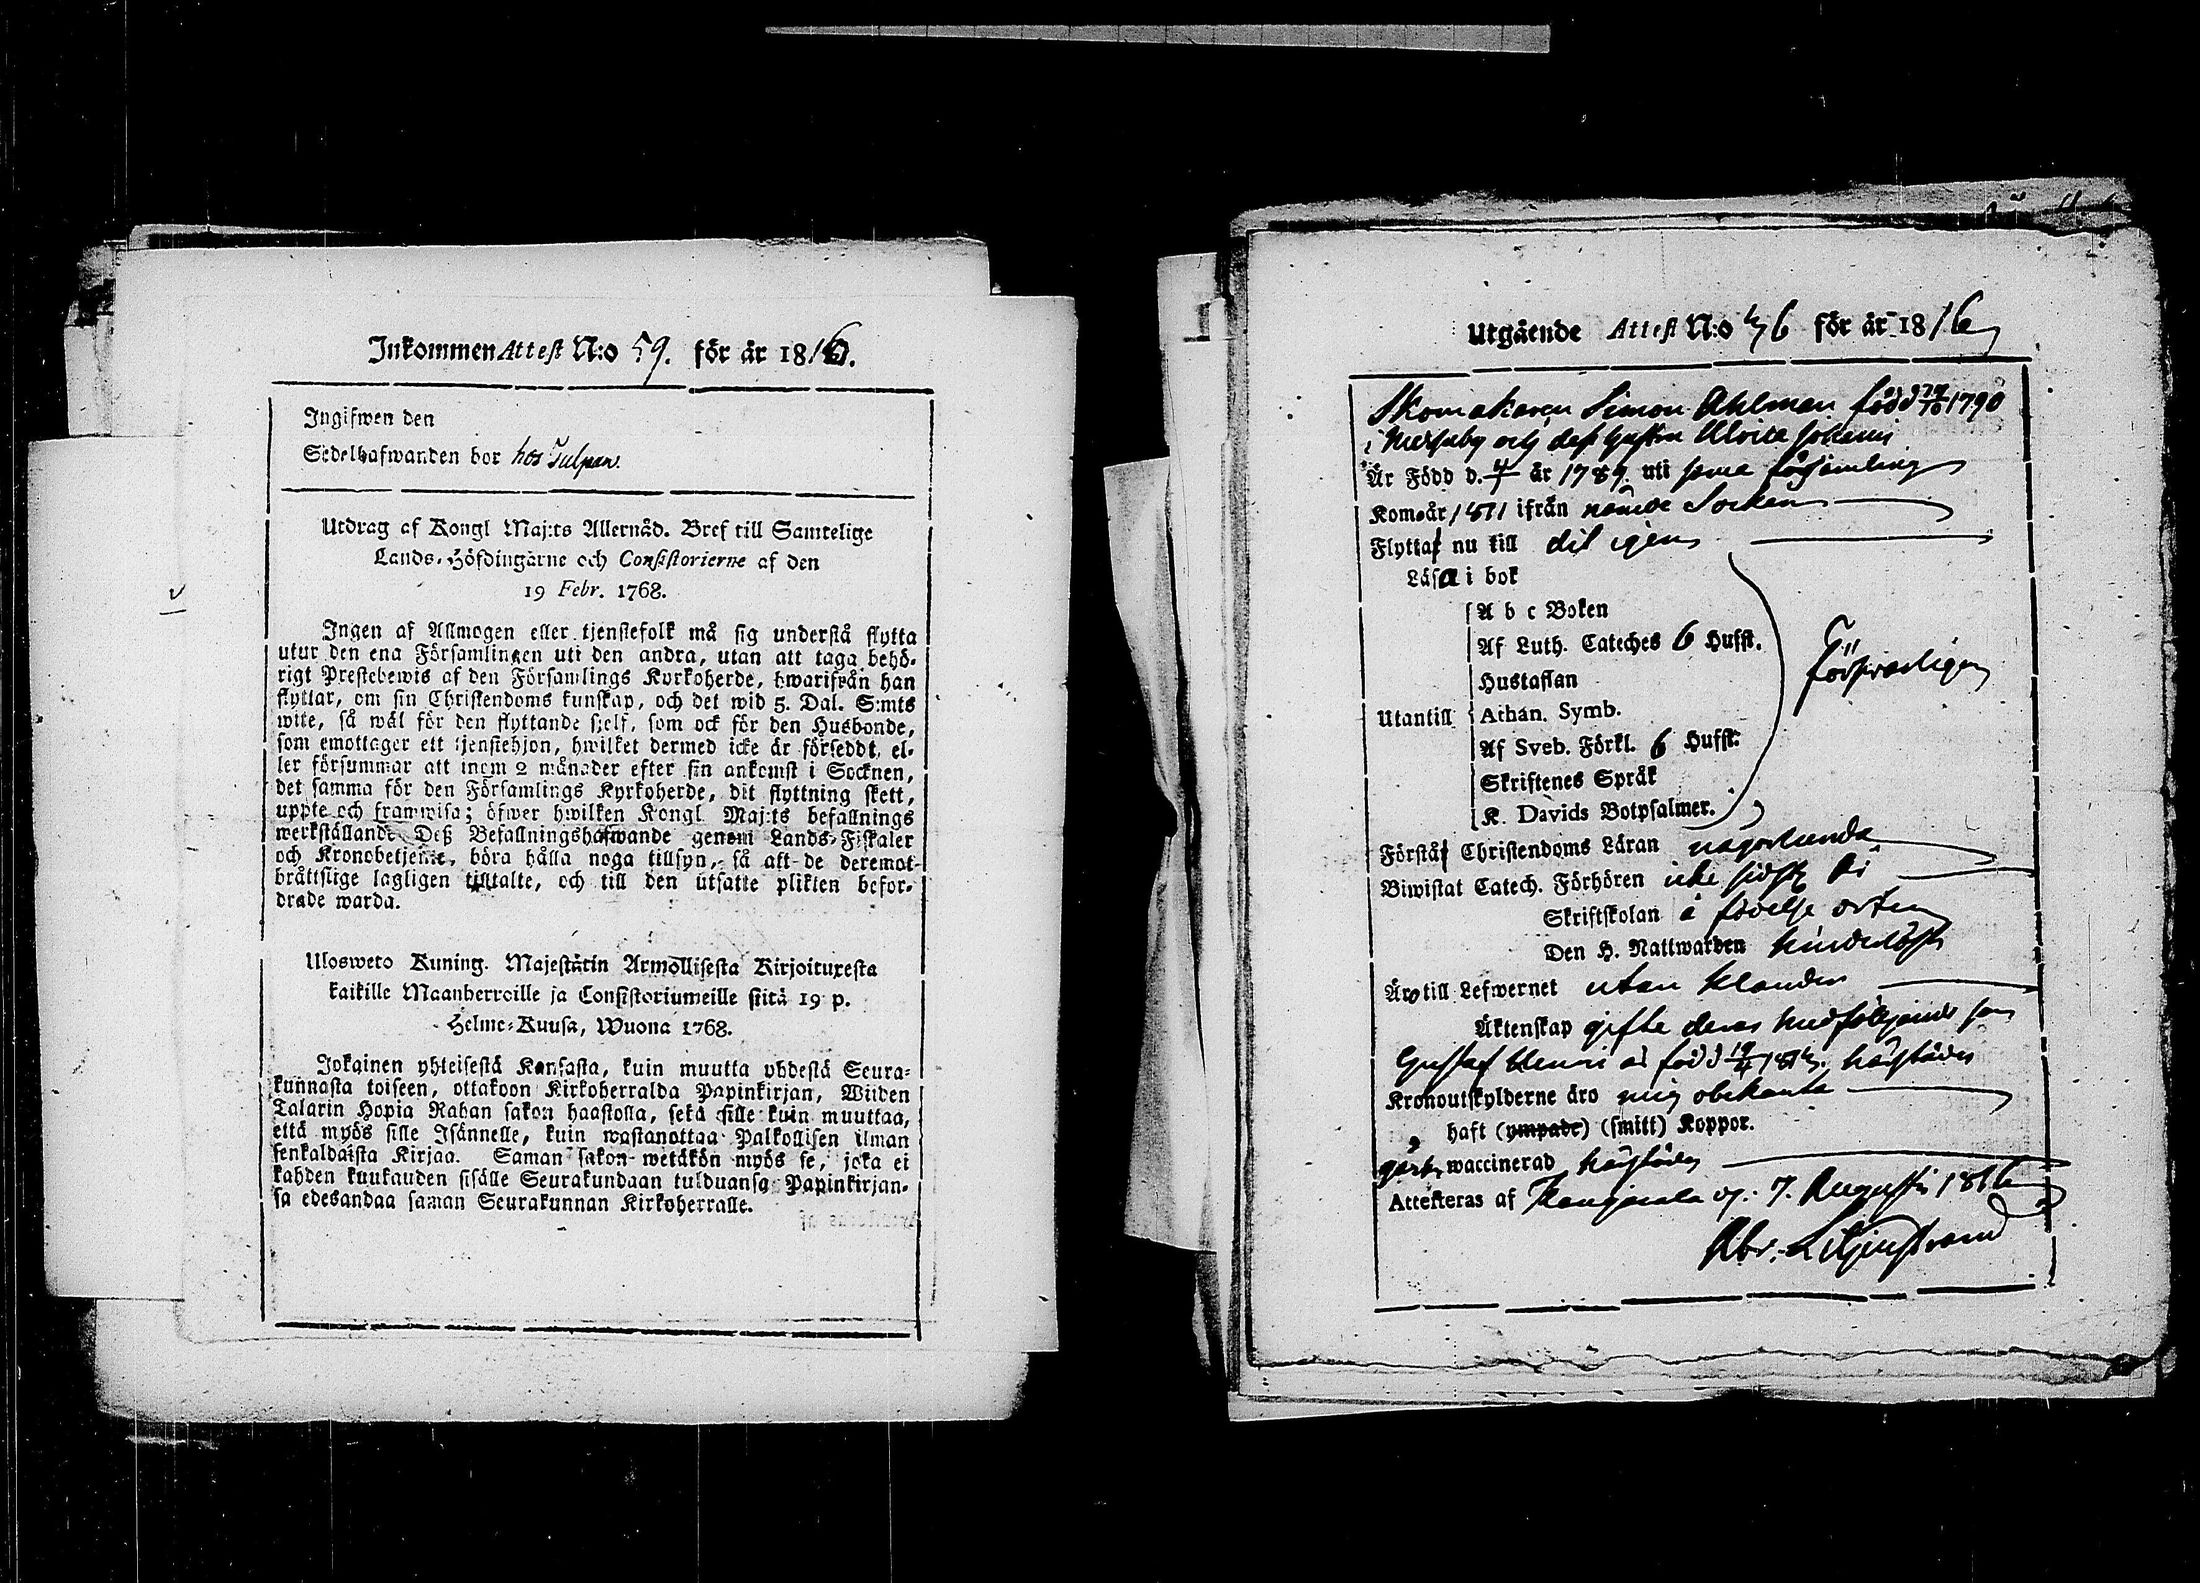 Inkommen Attest N:o 59. för år 1816.
Ingifwen den
Sedelhafwanden bor hos Tulpan.
Utdrag af Kongl Maj:ts Allernåd. Bref till Samtelige
Lands-Höfdingarne och Consistorierne af den
19 Febr. 1768.
Ingen af Allmogen eller tjenstefolk må sig understå flytta
utur den ena Församlingen uti den andra, utan att taga behö-
rigt Prestebewis af den Församlings Kyrkoherde, hwarifrån han
flyttar, om sin Christendoms kunskap, och det wid 5. Dal. S:mts
wite, så wäl för den flyttande sjelf, som ock för den Husbonde,
som emottager ett tjenstehjon, hwilket dermed icke är försedt, el-
ler försummar att inom 2 månader efter sin ankomst i Socknen,
det samma för den Församlings Kyrkoherde, dit flyttning skett,
uppte och framwisa; öfwer hwilken Kongl Maj:ts befallnings
werkställande Deß Befallningshafwande genom Lands-Fiskaler
och Kronobetjente, böra hålla noga tillsyn, så att de deremot-
bråttslige lagligen tilltalte, och till den utsatte plikten befor-
drade warda.
Ulosweto Kuning. Majestätin Armollisesta Kirjoituxesta
kaikille Maanherroille ja Consistoriumeille siitä 19 p.
Helme-Kuusa, Wuona 1768.
Jokainen yhteisestä Kansasta, kuin muutta yhdestä Seura-
kunnasta toiseen, ottakoon Kirkoherralda Papinkirjan, Wiiden
Talarin Hopia Rahan sakon haastolla, sekä sille kuin muuttaa,
että myös sille Isännelle, kuin wastanottaa Palkollisen ilman
senkaldaista Kirjaa. Saman sakon wetäkön myös se, joka ei
kahden kuukauden sisälle Seurakundaan tulduansa Papinkirjan-
sa edesandaa saman Seurakunnan Kirkoherralle.
Utgående Attest N:o 46 för år 1816
Skomakaren Simon Ahlman född 28/10 1790
i och dess hustru Ulrica
Är Född d. år 1789. uti sama församling
Kom år 1811 ifrån nämde Socken
Flytta nu till dit igen
Läsa i bok
A b c Boken
Af Luth. Cateches 6 Hufst.
Hustaflan
Utantill Athan. Symb.
Af Sveb. Förkl. 6 Hufst:
Skriftenes Språk
K. Davids Botpsalmer.
Försvarligen
Förstå Christendoms Läran någorlunda
Biwistat Catech. Förhören icke sidst
Skriftskolan å födelse orten
Den H. Nattwarden hinderlöst
Äro till Lefwernet utan klander
Äktenskap gifte deras medföljande son
Gustaf Henric är född
Kronoutskylderne äro mig obekanta
haft (ympade) (smitt) Koppor.
waccinerad
Attesteras af Kangasala d. 7. Augusti 1816
Abr. Lilljenstrand